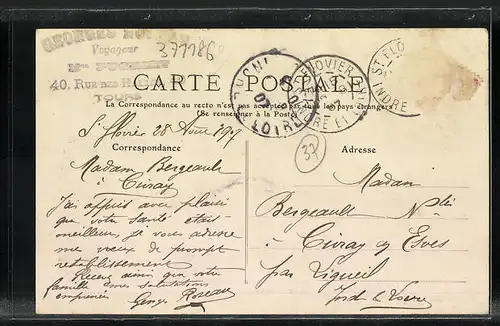 GEORGES
Voyageur
371186
40, Rue des
TOURS
CARTE POSTALE
La Correspondance au recto n'est pas acceptée par tous les pays étrangers
(Se renseigner à la Poste)
St flovier 28 Aout 1907
Correspondance
Adresse
37
Madam Bergeault
à Civray
J'ai appris avec plaisir
que votre santé etait
meilleur, je vous adresse
mes voeux de prompt
retablissement
Recevez ainsi que votre
famille mes salutations
empressées
Georges
Madam
Bergeault
à Civray sur Esves
par Ligueil
Indre & Loire